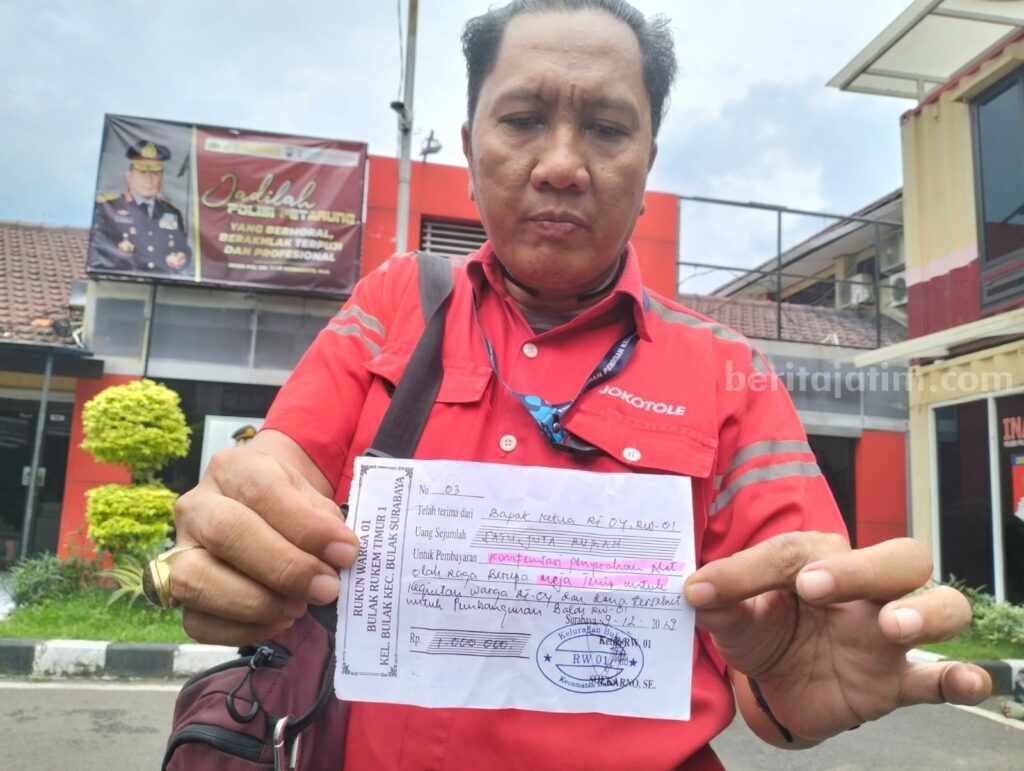 Jadilah
POLISI PETARUNG
YANG BERMORAL,
BERAKHLAK TERPUJI
DAN PROFESIONAL
beritajatim.com
JOKOTOLE
RUKUN WARGA 01
BULAK RUKEM TIMUR 1
KEL. BULAK KEC. BULAK SURABAYA
No 03
Telah terima dari Bapak Ketua Rt 04 RW-01
Uang Sejumlah SATU JUTA RUPIAH
Untuk Pembayaran Kompensasi Penyerahan Alat
olah Raga Berupa Meja Tenis untuk
Kegiatan warga Rt-04, dan dana tersebut
untuk Pembangunan Balai RW-01
Surabaya 9-12-20
Rp 1.000.000.
Ketua RW. 01
Kelurahan Bulak
RW.01
Kecamatan
SUKARNO, SE.